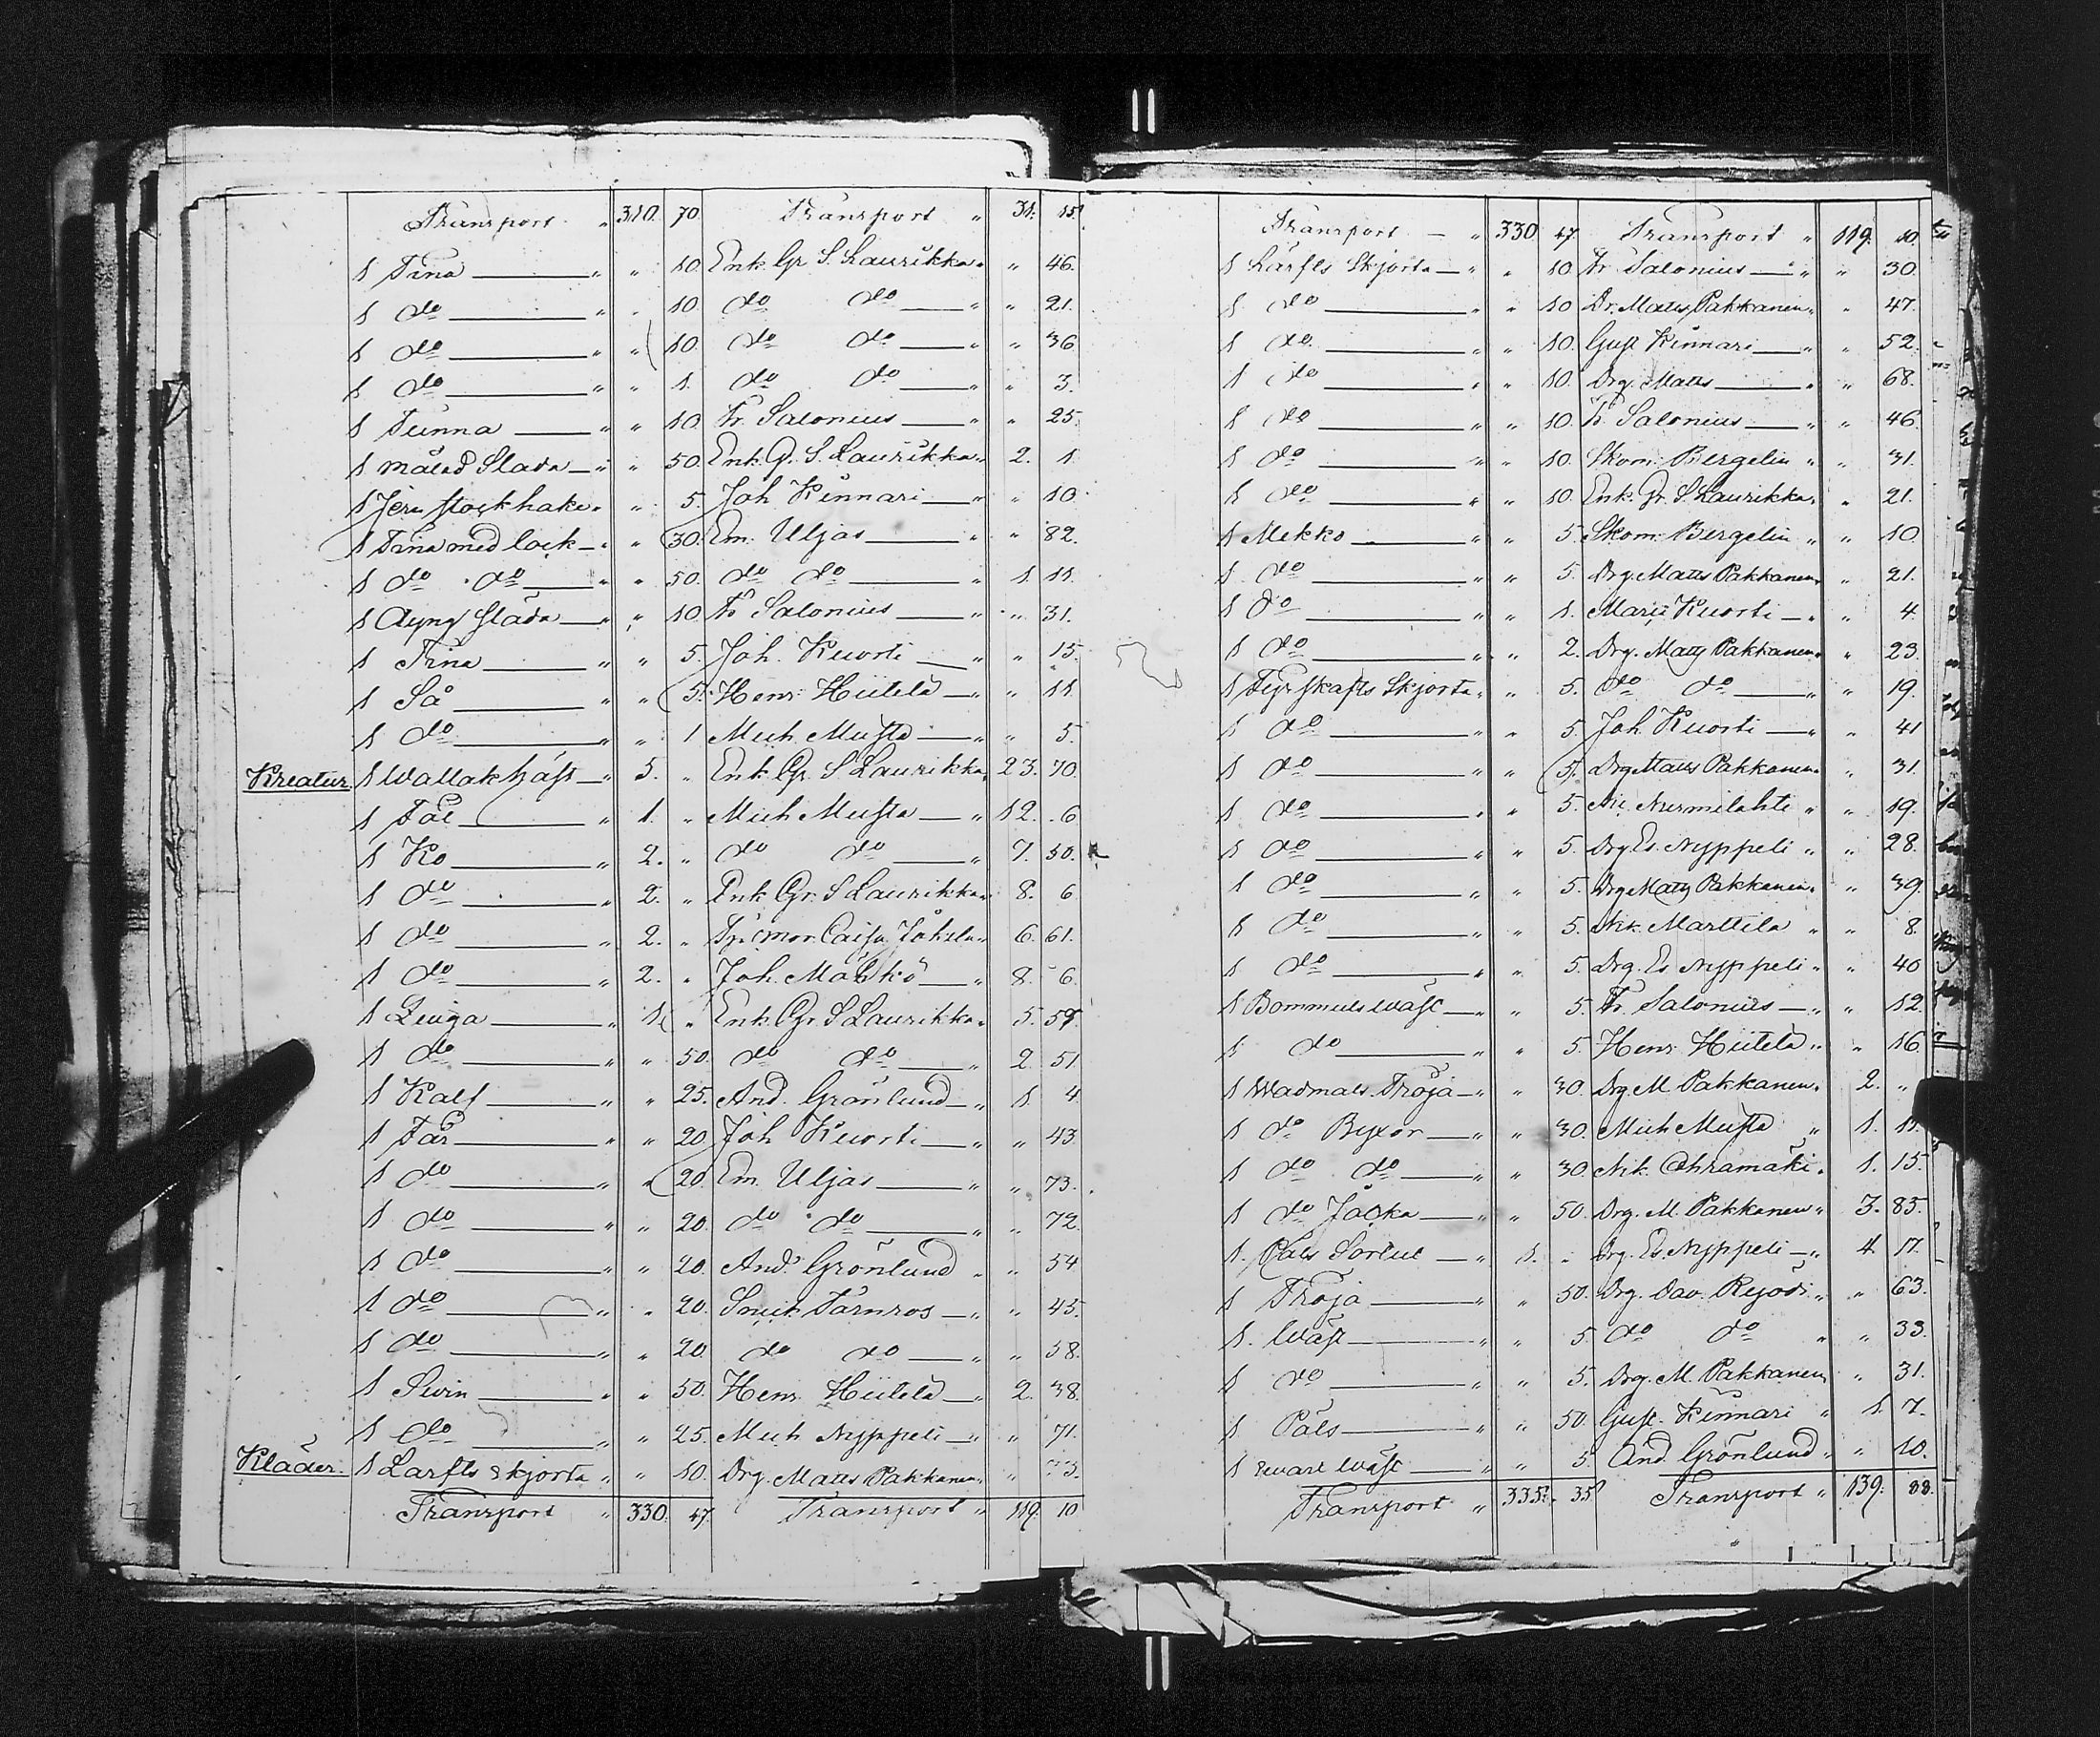 Transport " 310. 70. Transport " 31. 15.
1 Tina " " 10. Enk. Gr. S. Laurikka " " 46.
1 do " " 10. do do " " 21.
1 do " " 10. do do " " 36
1 do " " 1. do do " " 3.
1 Tunna " " 10. Fr. Salonius " " 25.
1 målad Slada " " 50. Enk. G. S. Laurikka " 2. 1.
1 Jern stockhake " " 5. Joh Kinnari " " 10.
1 Tina med lock " " 30. Em. Uljas " " 82.
1 do do " " 50. do do " 1. 11.
1 Slada " " 10. Fr Salonius " " 31.
1 Tina " " 5. Joh. Kuorti " " 15.
1 Så " " 5. Henr. Hiitelä " " 11.
1 do " " 1 Mich Musta " " 5.
Kreatur. 1 Wallakhäst " 5. " Enk. Gr. S Laurikka 23. 70.
1 Föl " 1. " Mich Musta " 12. 6
1 Ko " 2. " do do " 7. 50.
1 do " 2. " Enk Gr. S Laurikka 8. 6
1 do " 2. " Caisa 6. 61.
1 do " 2. " Joh. Mälkö " 8. 6.
1 Qviga " 1 " Enk Gr. S Laurikka " 5. 57.
1 do " " 50. do do " 2. 51
1 Kalf " " 25. And. Grönlund " 1. 4
1 Får " " 20. Joh Kuorti " " 43.
1 do " " 20. Em. Uljas " " 73.
1 do " " 20. do do " " 72.
1 do " " 20. And. Grönlund " " 54
1 do " " 20. Smick Tärnros " " 45.
1 do " " 20. do do " " 58.
1 Swin " " 50. Henr. Hiitelä " 2. 38.
1 do " " 25. Mich Nyppeli " " 71.
Kläder. 1 Lärfts skjorta " " 10. Drg. Matts Pakkanen " " 73.
Transport " 330. 47. Transport " 119. 10
Transport " 330 47 Transport " 119. 10.
1 Lärfts Skjorta " " 10. Fr. Salonius " " 30.
1 do " " 10 Dr. Matts Pakkanen " " 47.
1 do " " 10. Gust Kinnari " " 52.
1 do " " 10. Drg. Matts " " 68.
1 do " " 10. Fr Salonius " " 46.
1 do " " 10. Skom. Bergelin " " 31.
1 do " " 10. Enk. Gr. S. Laurikka " " 21.
1 Mekko " " 5. Skom. Bergelin " " 10.
1 do " " 5. Drg. Matts Pakkanen " " 21.
1 do " " 1. Maria Kuorti " " 4.
1 do " " 2. Drg. Matts Pakkanen " " 23.
1 Fyrskafts Skjorta " " 5. do do " " 19.
1 do " " 5. Joh Kuorti " " 41
1 do " " 5. Drg Matts Pakkanen " " 31.
1 do " " 5. Nurmilahti " " 19.
1 do " " 5. Drg Es. Nyppeli " " 28.
1 do " " 5. Drg Matts Pakkanen " " 39.
1 do " " 5. Nik. Marttila " " 8.
1 do " " 5. Drg. Es Nyppeli " " 40
1 Bommuls wäst " " 5. Fr. Salonius " " 12.
1 do " " 5. Henr Hiitelä " " 16.
1 Wadmals Tröja " " 30. Drg M. Pakkanen " 2. "
1 do Byxor " " 30. Mich Musta " 1. 11.
1 do do " " 30. Nik. 1. 15.
1 do Jacka " " 50. Drg. M. Pakkanen " 3. 85.
1. Päls " 1. " Drg. Es. Nyppeli " 4 17.
1 Tröja " " 50. Drg. Dav. " " 63.
1. Wäst " " 5. do do " " 33.
1 do " " 5. Drg. M. Pakkanen " " 31.
1 Päls " " 50. Gust. Kinnari " 1. 7.
1 swart wäst " " 5. And. Grönlund " " 10.
Transport " 335. 35 Transport " 139. 88.